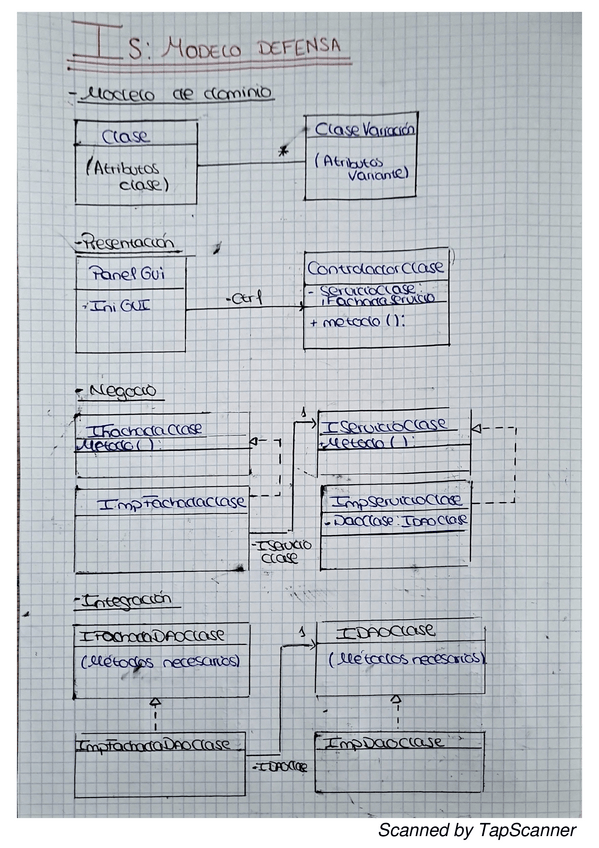 IS: MODELO DEFENSA
- Modelo de dominio
Clase
(Atributos
clase)
*
Clase Variación
(Atributos
Variante)
- Presentación
Panel Gui
- Ini GUI
- Ctrl
Controlador Clase
- Servicio Clase:
IFachada Servicio
+ metodo ():
- Negocio
IFachada Clase
Metodo ():
1
IServicio Clase
+ Metodo ():
ImpFachadaClase
- IServicio
Clase
ImpServicioClase
- DaoClase: IDAOClase
- Integración
IFachadaDAOClase
(Métodos necesarios)
1
IDAOClase
(Métodos necesarios)
ImpFachadaDAOClase
- IDAOClase
ImpDaoClase
Scanned by TapScanner